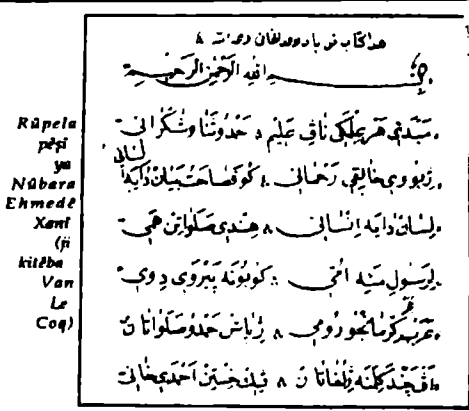 Rûpela
pêşî
ya
Nûbara
Ehmedê
Xanî
(ji
kitêba
Van
Le
Coq)
هذا كتاب
بسم الله الرحمن الرحيم
مبدئي هر علمكي نافي عليم حمد و ثنا و شكراني
ژبو وي خالقي رحماني كو فصاحت بيان دايه لساني
لسان دايه انساني هندي صلواتن هي
لرسولي منه امي كو بونه پيروي د وي
عرب كرمانج و رومي عجم ژ پاش حمد و صلواتان
اڤ چند كلمنه ژ لغاتان ڤيك خستن احمدي خاني